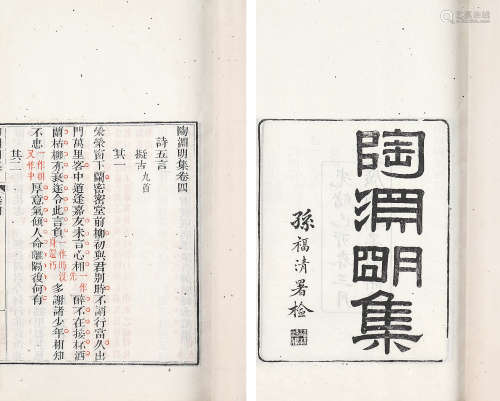 陶淵明集
孫福清署檢
陶淵明集卷四
詩五言
擬古九首
其一
榮榮窗下蘭密密堂前柳初與君別時不謂行當久出
門萬里客中道逢嘉友未言心相一作先醉不在接杯酒
蘭枯柳亦衰遂令此言負一作時沒身還朽多謝諸少年相知
不忠一作相又作中厚意氣傾人命離隔復何有
其二